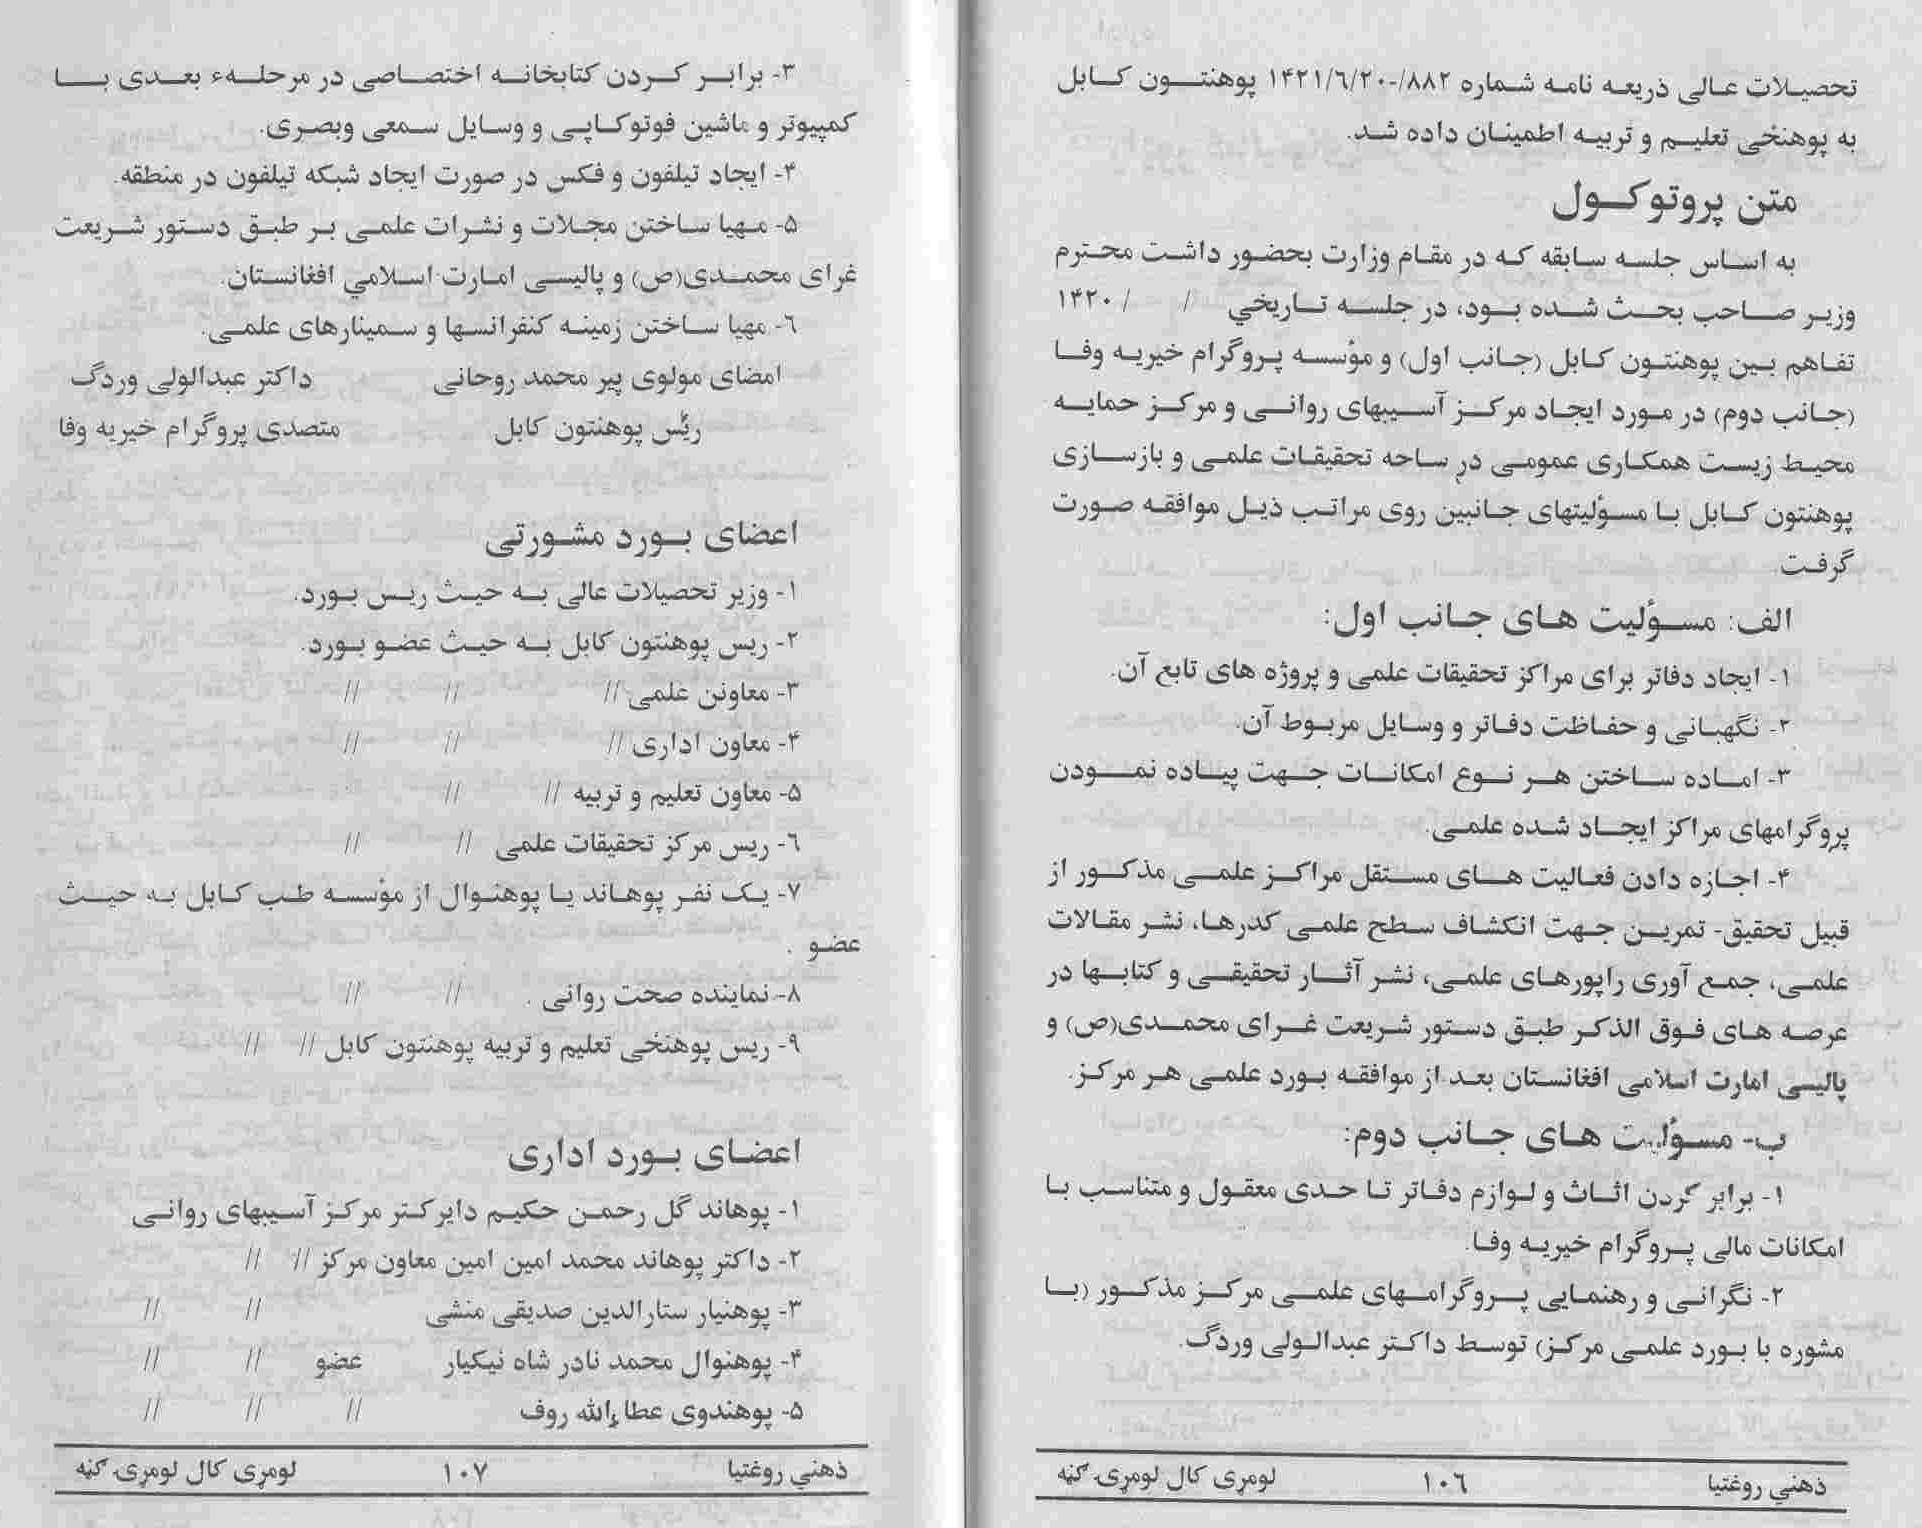 تحصیلات عالی ذریعه نامه شماره ۸۸۲/-۱۴۲۱/٦/۲۰ پوهنتون کابل
به پوهنځی تعلیم و تربیه اطمینان داده شد.
متن پروتوکول
به اساس جلسه سابقه که در مقام وزارت بحضور داشت محترم
وزیر صاحب بحث شده بود، در جلسه تاریخي / / ۱۴۲۰
تفاهم بین پوهنتون کابل (جانب اول) و مؤسسه پروگرام خیریه وفا
(جانب دوم) در مورد ایجاد مرکز آسیبهای روانی و مرکز حمایه
محیط زیست همکاری عمومی در ساحه تحقیقات علمی و بازسازی
پوهنتون کابل با مسؤلیتهای جانبین روی مراتب ذیل موافقه صورت
گرفت.
الف: مسؤلیت های جانب اول:
۱- ایجاد دفاتر برای مراکز تحقیقات علمی و پروژه های تابع آن.
۲- نگهبانی و حفاظت دفاتر و وسایل مربوط آن.
۳- اماده ساختن هر نوع امکانات جهت پیاده نمودن
پروگرامهای مراکز ایجاد شده علمی.
۴- اجازه دادن فعالیت های مستقل مراکز علمی مذکور از
قبیل تحقیق- تمرین جهت انکشاف سطح علمی کدرها، نشر مقالات
علمی، جمع آوری راپورهای علمی، نشر آثار تحقیقی و کتابها در
عرصه های فوق الذکر طبق دستور شریعت غرای محمدی(ص) و
پالیسی امارت اسلامی افغانستان بعد از موافقه بورد علمی هر مرکز.
ب- مسؤلیت های جانب دوم:
۱- برابر کردن اثاث و لوازم دفاتر تا حدی معقول و متناسب با
امکانات مالی پروگرام خیریه وفا.
۲- نگرانی و رهنمایی پروگرامهای علمی مرکز مذکور (با
مشوره با بورد علمی مرکز) توسط داکتر عبدالولی وردگ.
ذهني روغتیا ۱۰٦ لومړی کال لومړۍ ګڼه
۳- برابر کردن کتابخانه اختصاصی در مرحلهء بعدی با
کمپیوتر و ماشین فوتوکاپی و وسایل سمعی وبصری.
۴- ایجاد تیلفون و فکس در صورت ایجاد شبکه تیلفون در منطقه.
۵- مهیا ساختن مجلات و نشرات علمی بر طبق دستور شریعت
غرای محمدی(ص) و پالیسی امارت اسلامي افغانستان.
٦- مهیا ساختن زمینه کنفرانسها و سمینارهای علمی.
امضای مولوی پیر محمد روحانی داکتر عبدالولی وردگ
رئس پوهنتون کابل متصدی پروگرام خیریه وفا
اعضای بورد مشورتی
۱- وزیر تحصیلات عالی به حیث ریس بورد.
۲- ریس پوهنتون کابل به حیث عضو بورد.
۳- معاونن علمی // // //
۴- معاون اداری // // //
۵- معاون تعلیم و تربیه // // //
٦- ریس مرکز تحقیقات علمی // //
۷- یک نفر پوهاند یا پوهنوال از مؤسسه طب کابل به حیث
عضو .
۸- نماینده صحت روانی . // //
۹- ریس پوهنځی تعلیم و تربیه پوهنتون کابل // //
اعضای بورد اداری
۱- پوهاند گل رحمن حکیم دایرکتر مرکز آسیبهای روانی
۲- داکتر پوهاند محمد امین امین معاون مرکز // //
۳- پوهنیار ستارالدین صدیقی منشی // //
۴- پوهنوال محمد نادر شاه نیکیار عضو // //
۵- پوهندوی عطاءالله روف // // //
ذهني روغتیا ۱۰۷ لومړی کال لومړۍ ګڼه